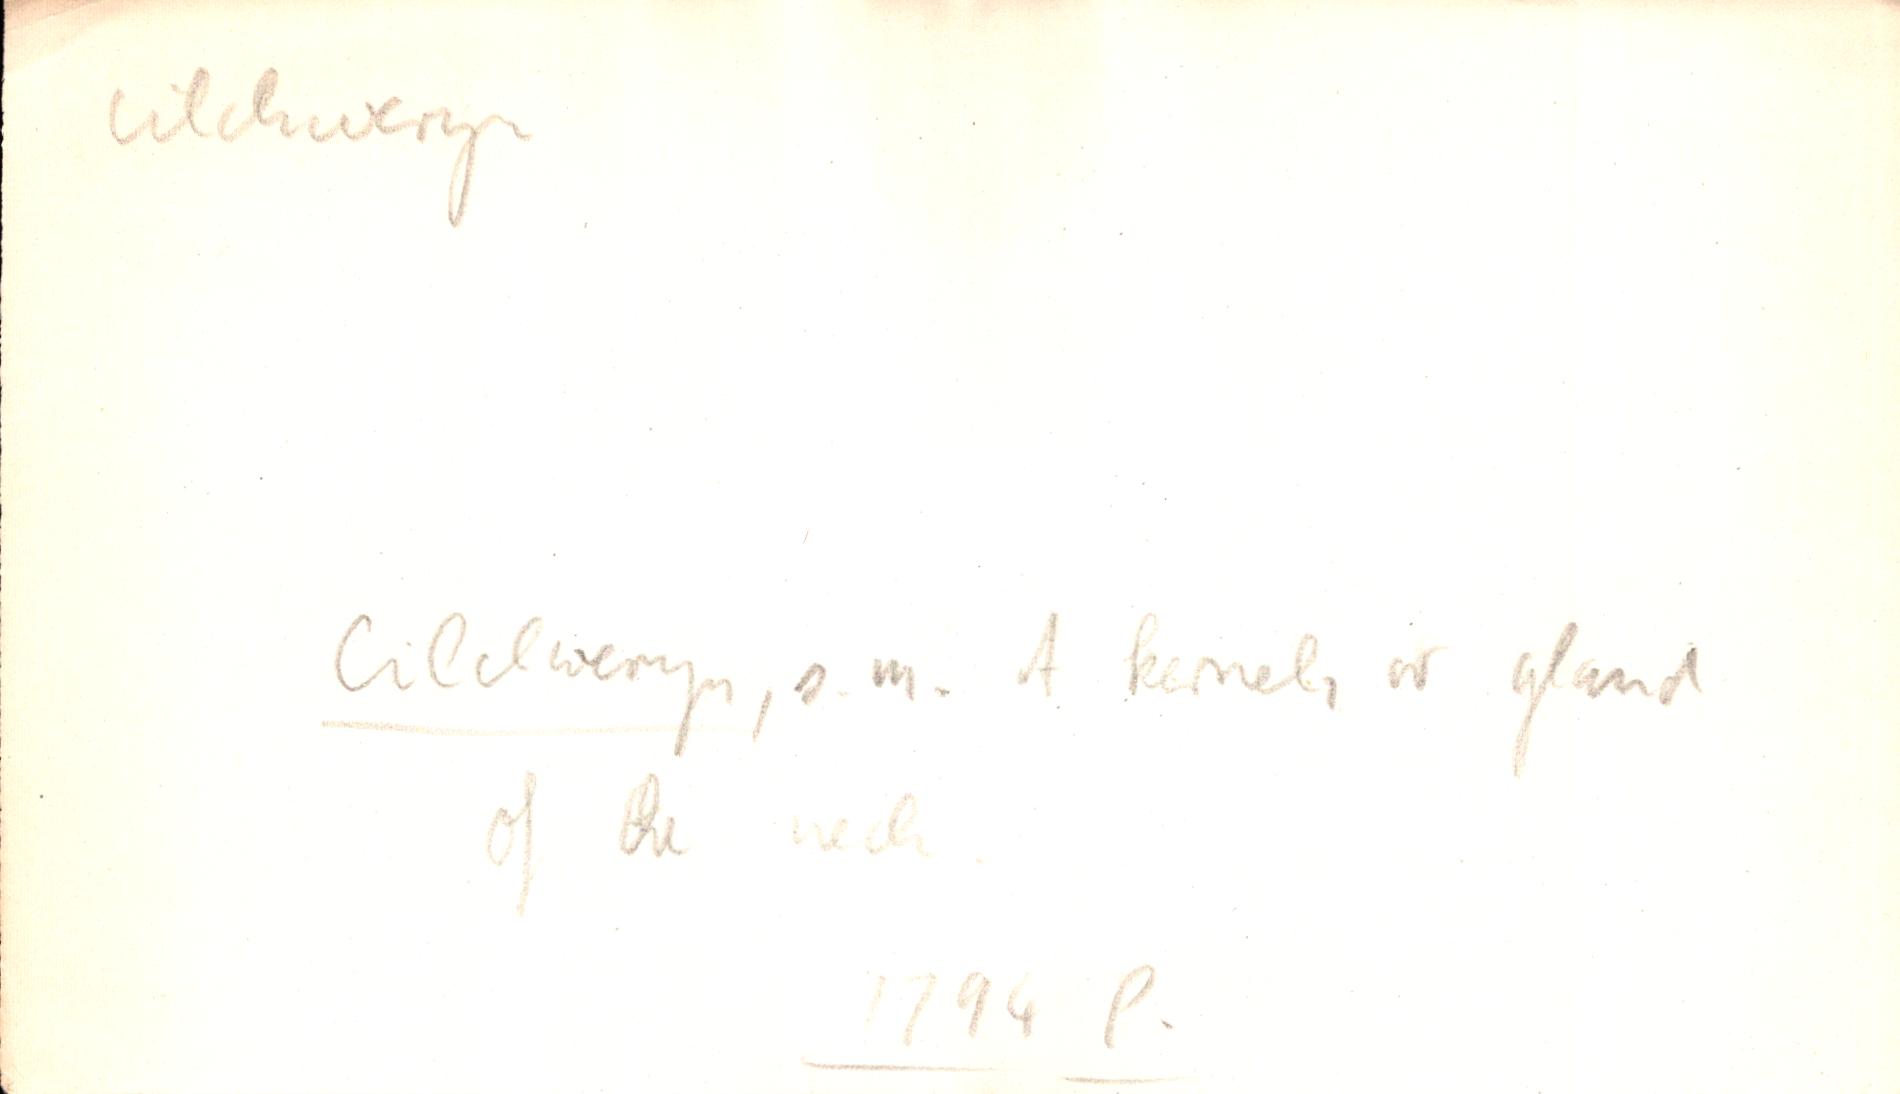 cilchweryn
Cilchweryn, s. m. A kernel, or gland
of the neck.
1794 P.